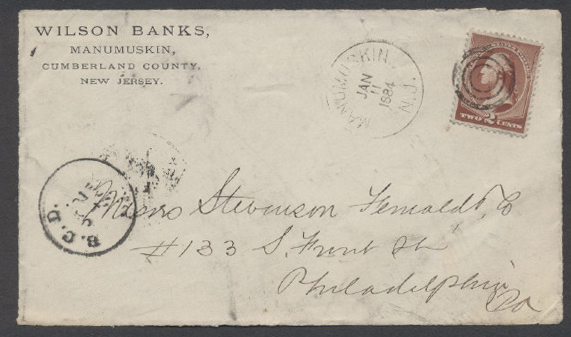 WILSON BANKS,
MANUMUSKIN,
CUMBERLAND COUNTY,
NEW JERSEY.
MANUMUSKIN, N.J.
JAN
11
1884
TWO 2 CENTS
B.C.D.
Messrs Stevenson & Co
#133 S. Front St
Philadelphia
Pa